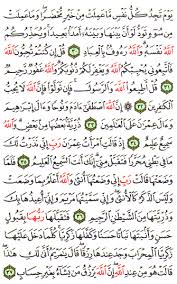 يَوْمَ تَجِدُ كُلُّ نَفْسٍ مَّا عَمِلَتْ مِنْ خَيْرٍ مُّحْضَرًا وَمَا عَمِلَتْ
مِن سُوٓءٍ تَوَدُّ لَوْ أَنَّ بَيْنَهَا وَبَيْنَهُۥٓ أَمَدًۢا بَعِيدًا وَيُحَذِّرُكُمُ
ٱللَّهُ نَفْسَهُۥ وَٱللَّهُ رَءُوفٌۢ بِٱلْعِبَادِ ٣٠ قُلْ إِن كُنتُمْ تُحِبُّونَ ٱللَّهَ
فَٱتَّبِعُونِى يُحْبِبْكُمُ ٱللَّهُ وَيَغْفِرْ لَكُمْ ذُنُوبَكُمْ وَٱللَّهُ غَفُورٌ رَّحِيمٌ ٣١
قُلْ أَطِيعُوا۟ ٱللَّهَ وَٱلرَّسُولَ فَإِن تَوَلَّوْا۟ فَإِنَّ ٱللَّهَ لَا يُحِبُّ
ٱلْكَٰفِرِينَ ٣٢ إِنَّ ٱللَّهَ ٱصْطَفَىٰٓ ءَادَمَ وَنُوحًا وَءَالَ إِبْرَٰهِيمَ
وَءَالَ عِمْرَٰنَ عَلَى ٱلْعَٰلَمِينَ ٣٣ ذُرِّيَّةًۢ بَعْضُهَا مِنۢ بَعْضٍ وَٱللَّهُ
سَمِيعٌ عَلِيمٌ ٣٤ إِذْ قَالَتِ ٱمْرَأَتُ عِمْرَٰنَ رَبِّ إِنِّى نَذَرْتُ لَكَ
مَا فِى بَطْنِى مُحَرَّرًا فَتَقَبَّلْ مِنِّىٓ إِنَّكَ أَنتَ ٱلسَّمِيعُ ٱلْعَلِيمُ ٣٥
فَلَمَّا وَضَعَتْهَا قَالَتْ رَبِّ إِنِّى وَضَعْتُهَآ أُنثَىٰ وَٱللَّهُ أَعْلَمُ بِمَا وَضَعَتْ
وَلَيْسَ ٱلذَّكَرُ كَٱلْأُنثَىٰ وَإِنِّى سَمَّيْتُهَا مَرْيَمَ وَإِنِّىٓ أُعِيذُهَا بِكَ
وَذُرِّيَّتَهَا مِنَ ٱلشَّيْطَٰنِ ٱلرَّجِيمِ ٣٦ فَتَقَبَّلَهَا رَبُّهَا بِقَبُولٍ
حَسَنٍ وَأَنۢبَتَهَا نَبَاتًا حَسَنًا وَكَفَّلَهَا زَكَرِيَّا كُلَّمَا دَخَلَ عَلَيْهَا
زَكَرِيَّا ٱلْمِحْرَابَ وَجَدَ عِندَهَا رِزْقًا قَالَ يَٰمَرْيَمُ أَنَّىٰ لَكِ هَٰذَا
قَالَتْ هُوَ مِنْ عِندِ ٱللَّهِ إِنَّ ٱللَّهَ يَرْزُقُ مَن يَشَآءُ بِغَيْرِ حِسَابٍ ٣٧